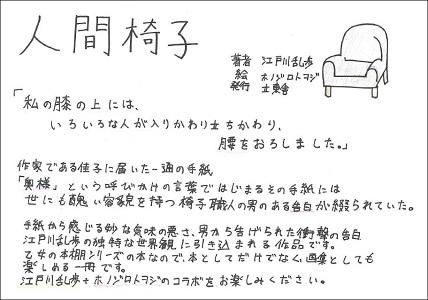 人間椅子
著者 江戸川乱歩
絵 ホノジロトヲジ
発行 立東舎
「私の膝の上には、
いろいろな人が入りかわり立ちかわり、
腰をおろしました。」
作家である佳子に届いた一通の手紙
「奥様」という呼びかけの言葉ではじまるその手紙には
世にも醜い容貌を持つ椅子職人の男のある告白が綴られていた。
手紙から感じる妙な気味の悪さ、男から告げられた衝撃の告白
江戸川乱歩の独特な世界観に引き込まれる作品です。
乙女の本棚シリーズの本なので、本としてだけでなく、画集としても
楽しめる一冊です。
江戸川乱歩+ホノジロトヲジのコラボをお楽しみください。